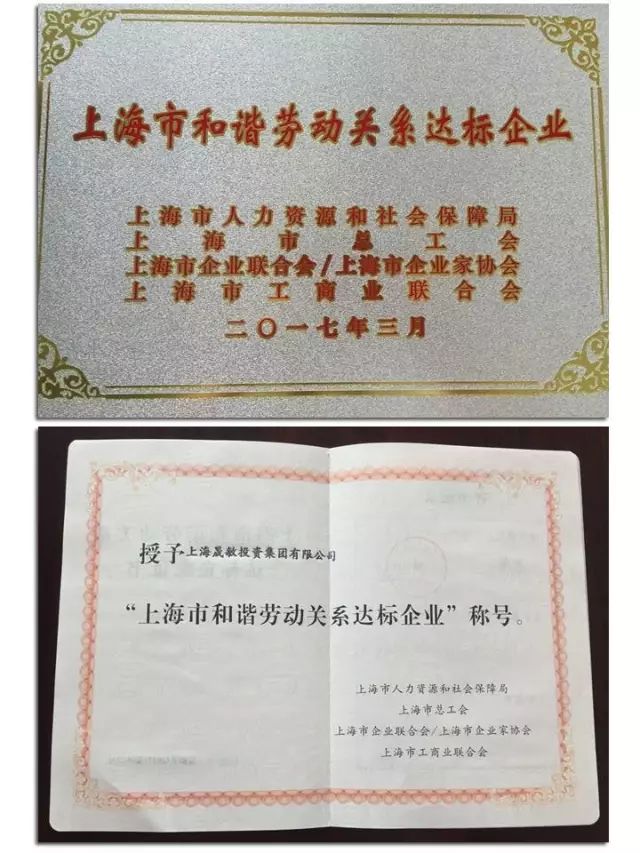 上海市和谐劳动关系达标企业
上海市人力资源和社会保障局
上海市总工会
上海市企业联合会/上海市企业家协会
上海市工商业联合会
二〇一七年三月
授予上海晟敏投资集团有限公司
“上海市和谐劳动关系达标企业”称号。
上海市人力资源和社会保障局
上海市总工会
上海市企业联合会/上海市企业家协会
上海市工商业联合会